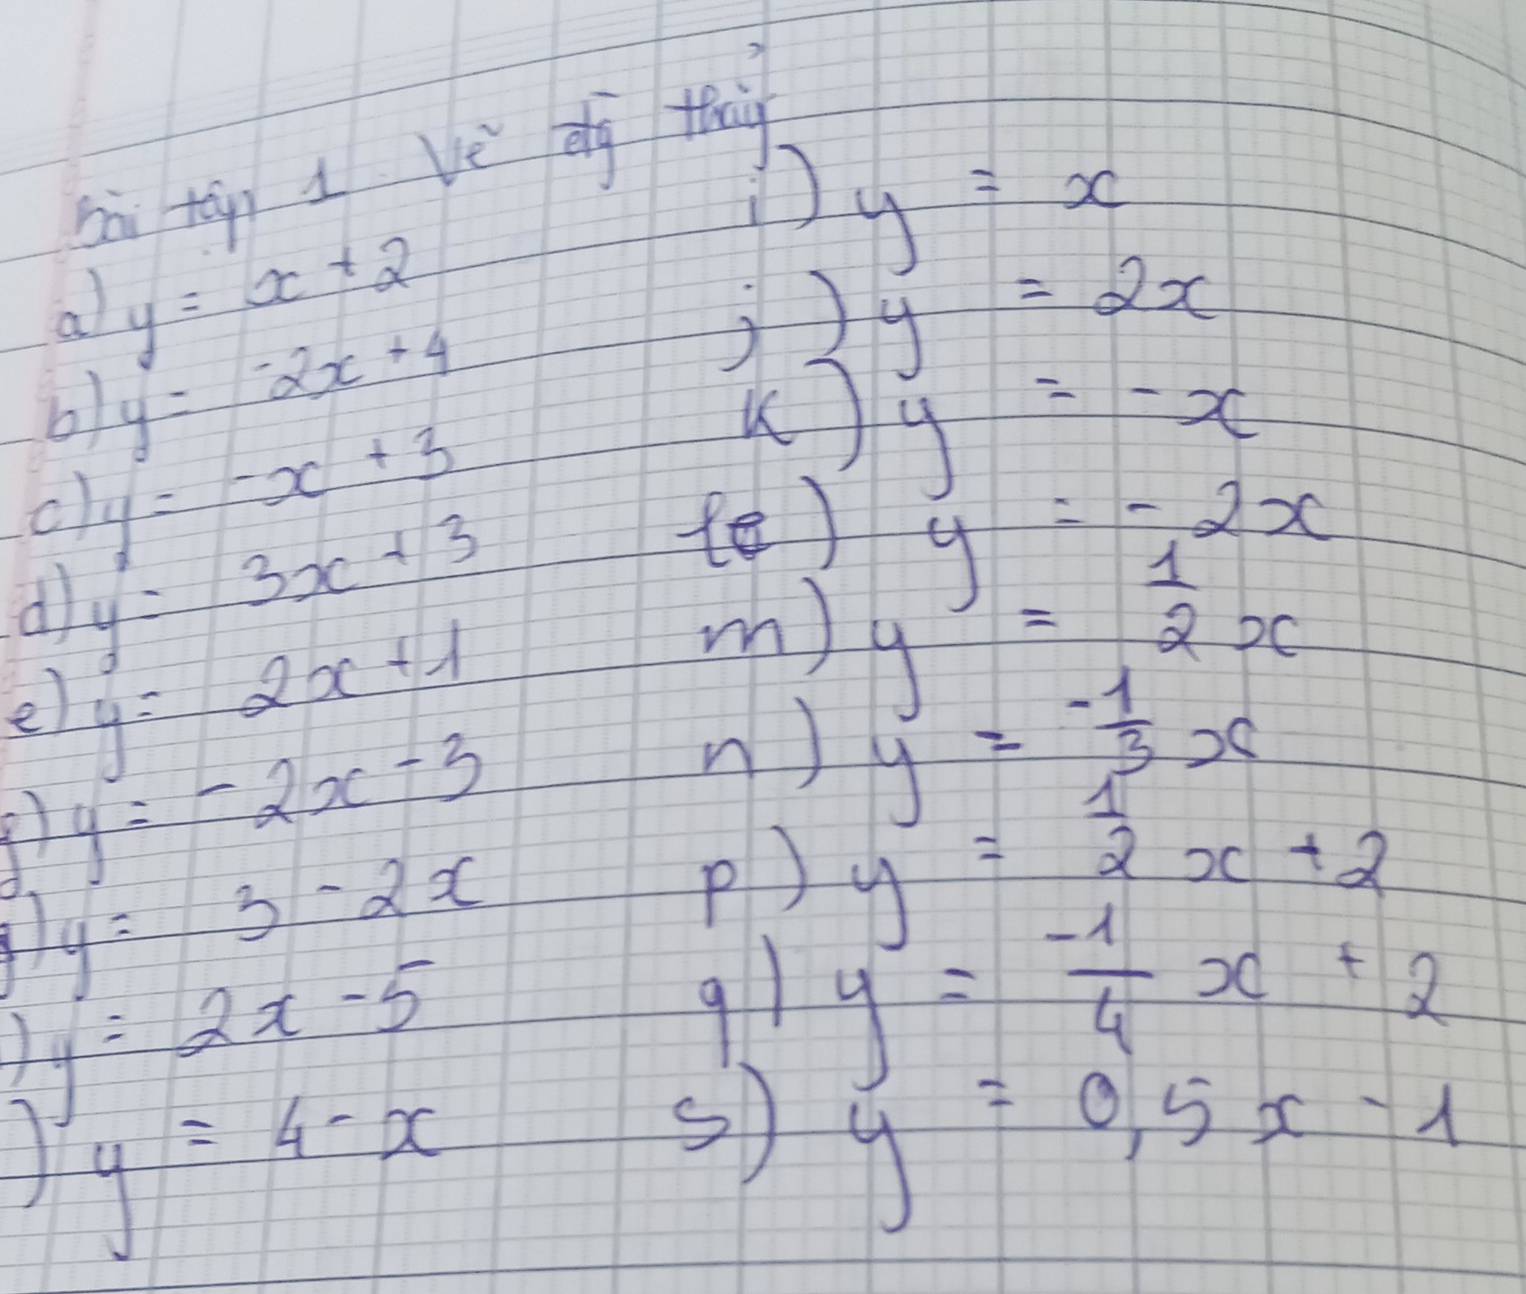 Bài tập 1 Vẽ đg thẳng
a) y = x + 2
b) y = -2x + 4
c) y = -x + 3
d) y = 3x + 3
e) y = 2x + 1
) y = -2x - 3
) y = 3 - 2x
) y = 2x - 5
) y = 4 - x
i) y = x
j) y = 2x
k) y = -x
l) y = -2x
m) y = 1/2 x
n) y = -1/3 x
p) y = 1/2 x + 2
q) y = -1/4 x + 2
s) y = 0,5x - 1